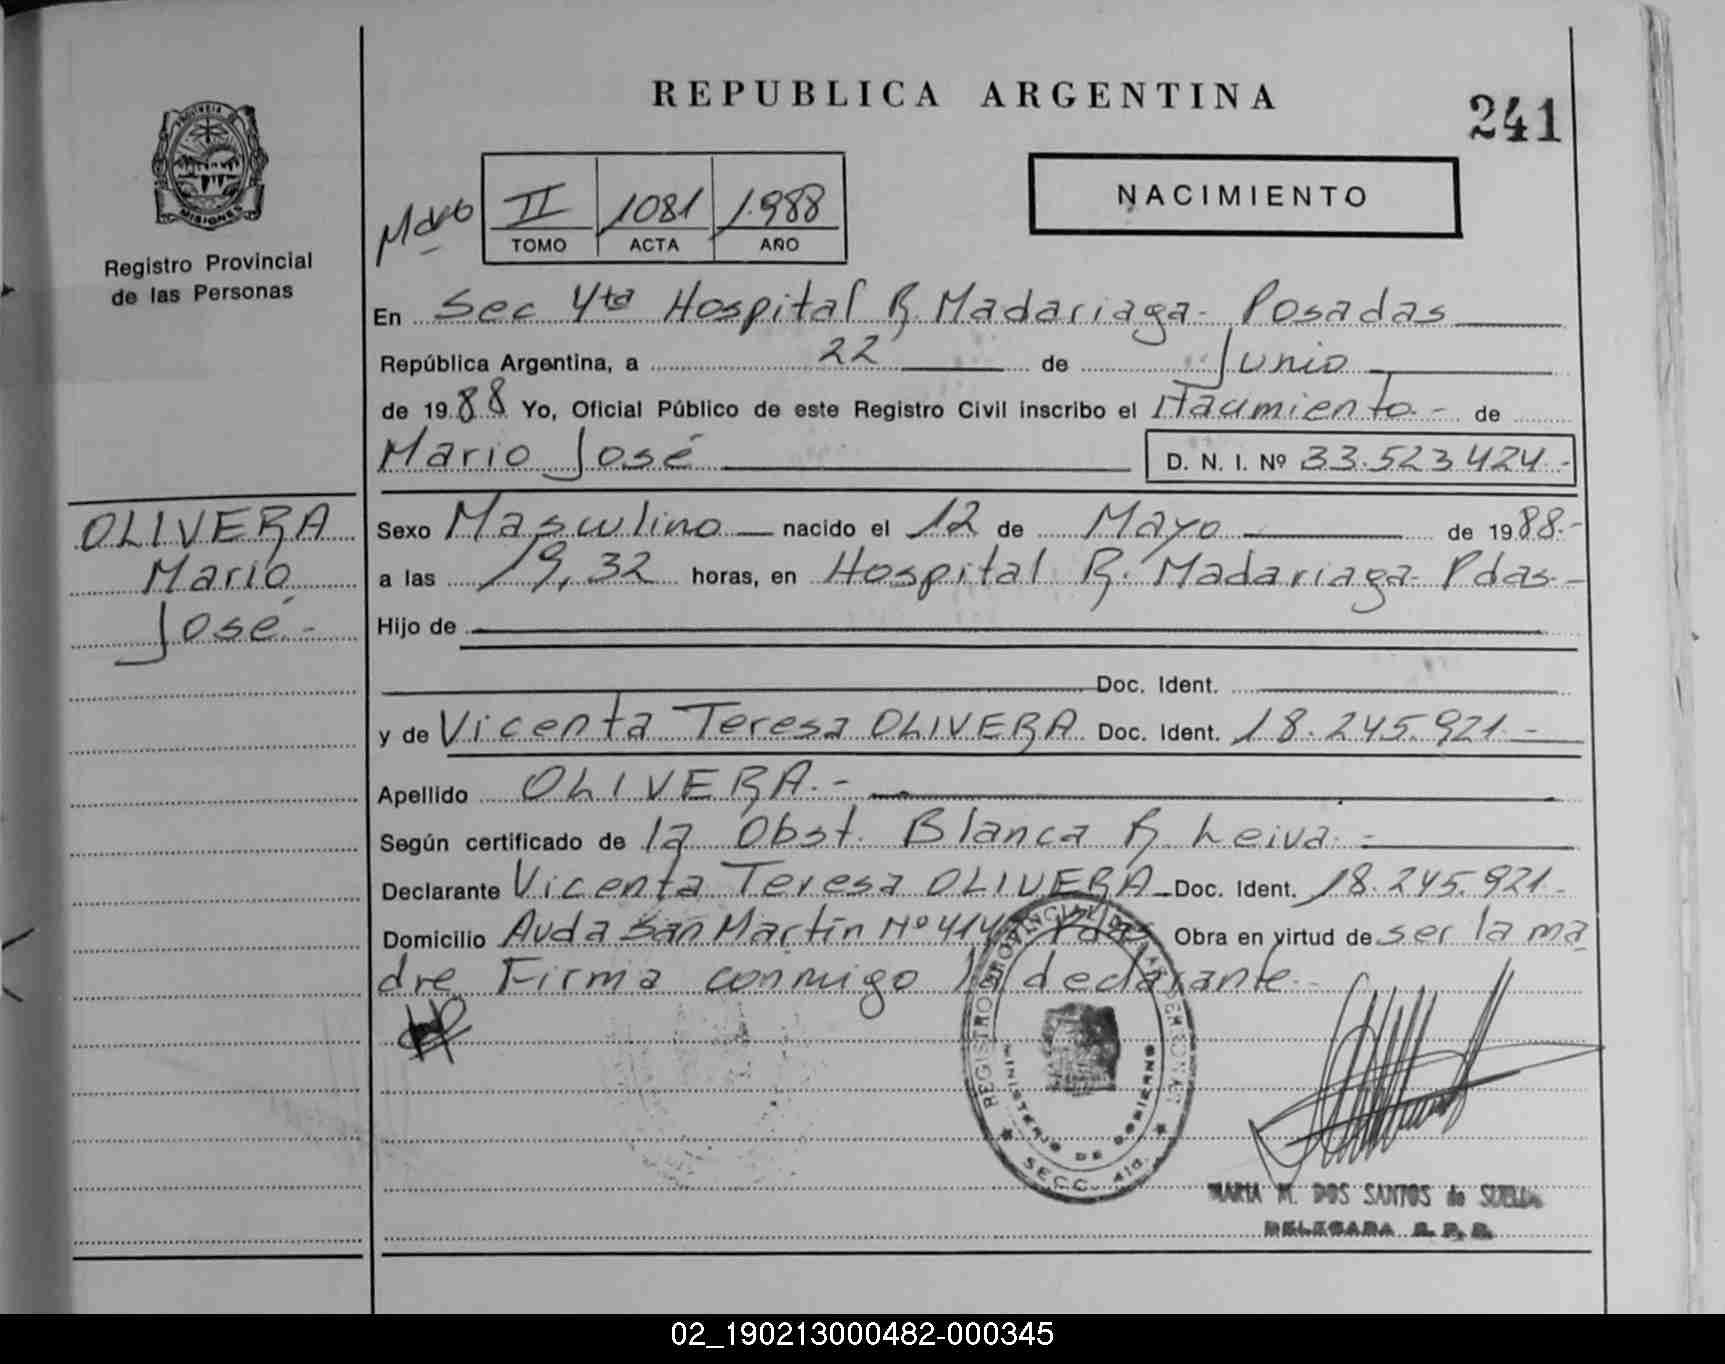 REPUBLICA ARGENTINA
241
PROVINCIA DE
MISIONES
Registro Provincial
de las Personas
II 1081 1.988
TOMO ACTA AÑO
NACIMIENTO
En Sec 4ta Hospital R. Madariaga - Posadas
República Argentina, a 22 de Junio
de 1988 Yo, Oficial Público de este Registro Civil inscribo el Nacimiento.- de
Mario José D. N. I. Nº 33.523424.-
OLIVERA
Mario
José.-
Sexo Masculino nacido el 12 de Mayo de 1988.-
a las 19,32 horas, en Hospital R. Madariaga - Pdas.-
Hijo de
Doc. Ident.
y de Vicenta Teresa OLIVERA Doc. Ident. 18.245.921.-
Apellido OLIVERA.-
Según certificado de la Obst. Blanca R. Leiva.-
Declarante Vicenta Teresa OLIVERA Doc. Ident. 18.245.921.-
Domicilio Avda San Martín Nº 414 Pdas Obra en virtud de ser la ma
dre Firma conmigo la declarante.-
REGISTRO PROVINCIAL DE LAS PERSONAS
MINISTERIO DE GOBIERNO
SECC. 4ta.
MARIA M. DOS SANTOS de
DELEGADA R. P. P.
02_190213000482-000345